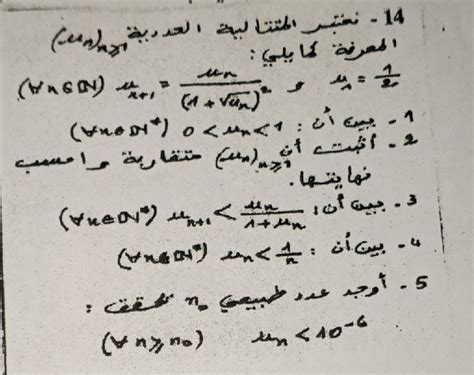 14 - نعتبر المتتالية العددية (uₙ)ₙ≥₁
المعرفة كمايلي:
(∀n∈ℕ) uₙ₊₁ = uₙ / (1+√uₙ)² و u₁ = 1/2
1 - بين أن : 0 < uₙ < 1 (∀n∈ℕ*)
2 - أثبت أن (uₙ)ₙ≥₁ متقاربة واحسب
نهايتها.
3 - بين أن : uₙ₊₁ < uₙ / (1+uₙ) (∀n∈ℕ*)
4 - بين أن : uₙ < 1/n (∀n∈ℕ*)
5 - أوجد عدد طبيعي n₀ تحقق :
(∀n≥n₀) uₙ < 10⁻⁶